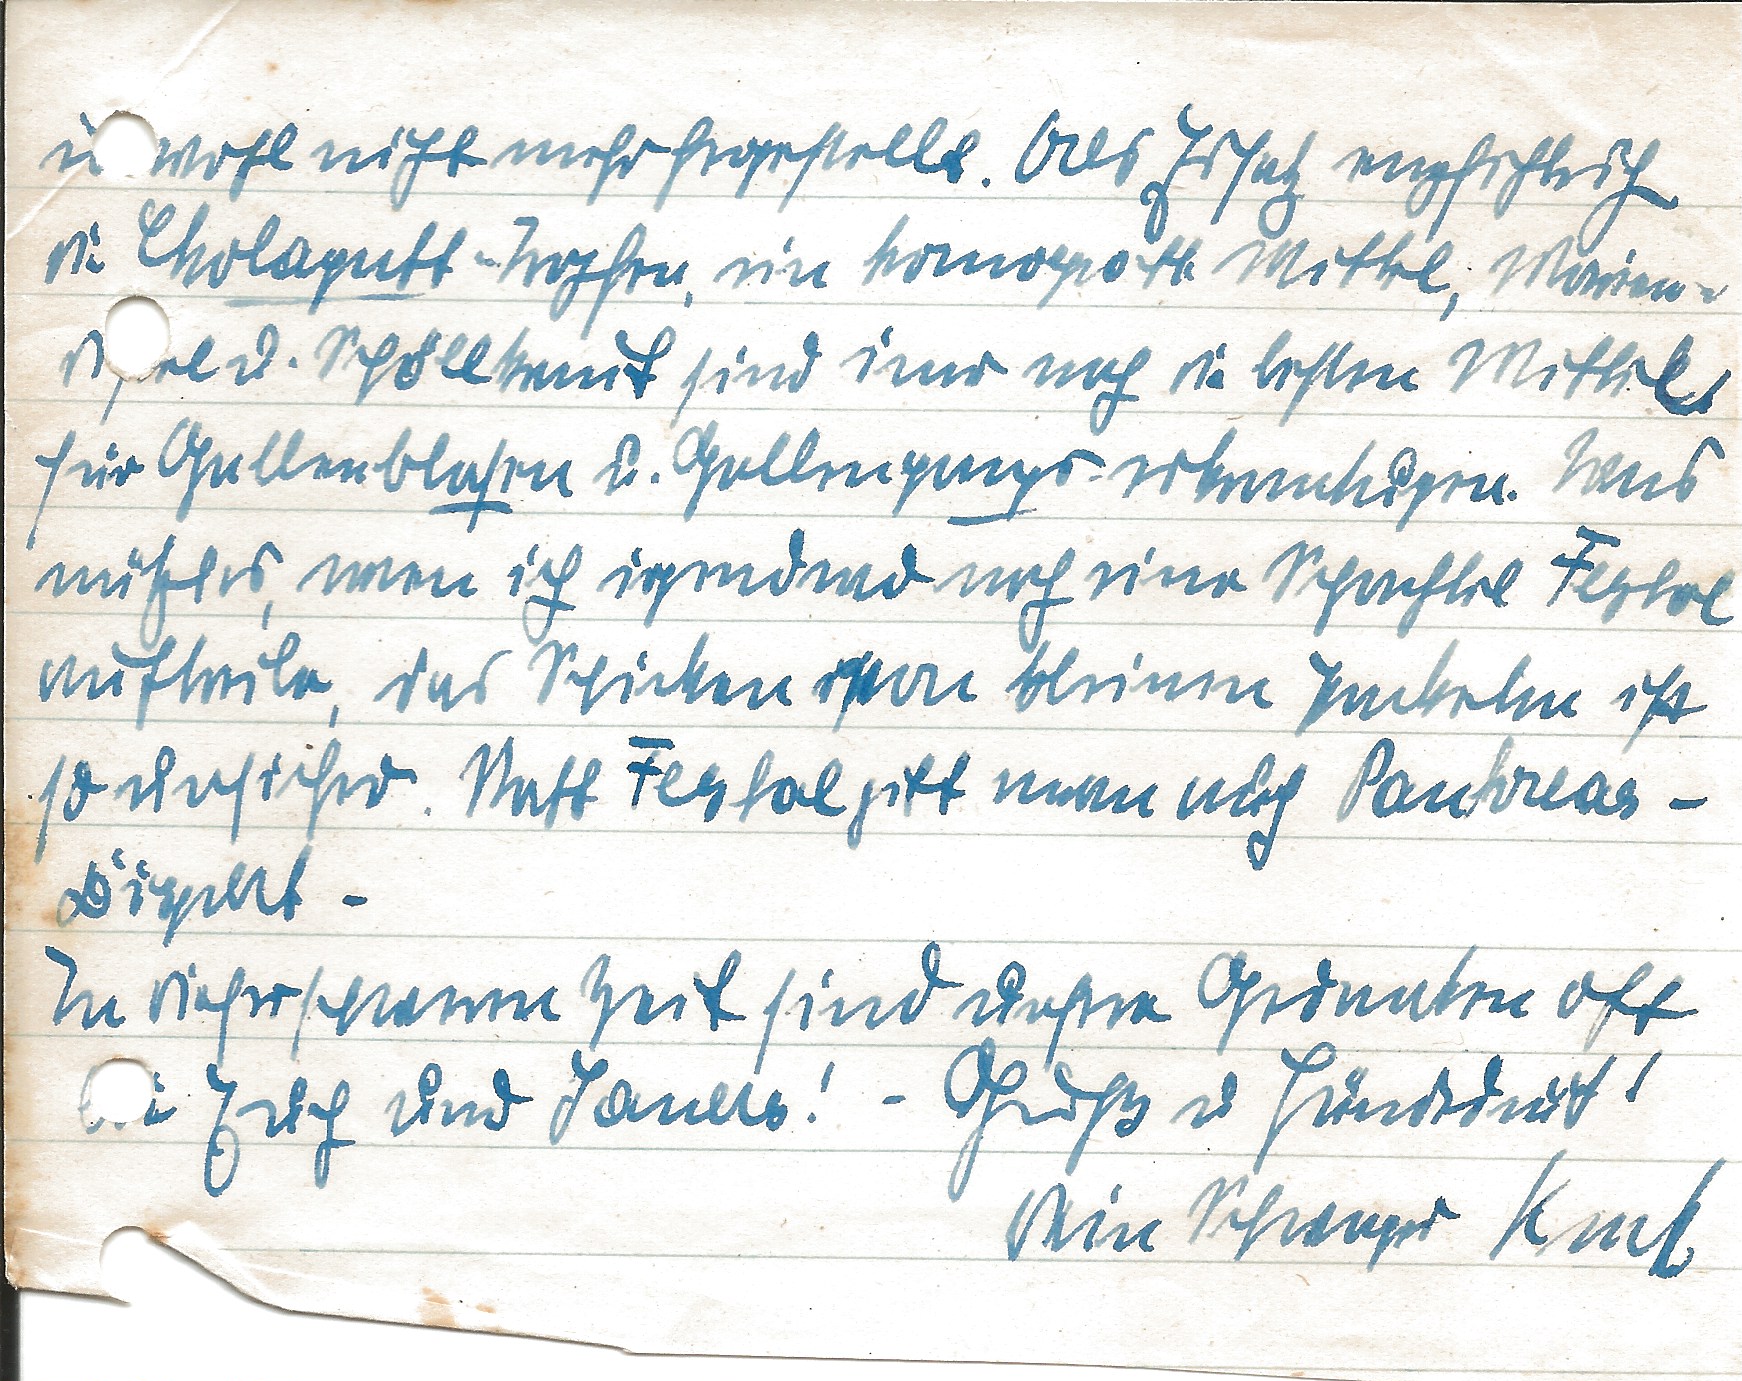 u wohl nicht mehr hergestellt. Als Ersatz empfehle ich
die Cholagutt-Tropfen, ein homoepath Mittel, Marien-
distel u. Schöllkraut sind imer noch die besten Mittel
für Gallenblasen u. Gallengangs-erkrankungen. Was
nützt es, wenn ich irgendwo noch eine Schachtel Festal
auftreibe, das Schicken von kleinen Packeln ist
so unsicher. Statt Festal gibt man auch Pankreas-
In dieser schweren Zeit sind unsere Gedanken oft
bei Euch und - Gruß u Händedruck!
Dein Schwager